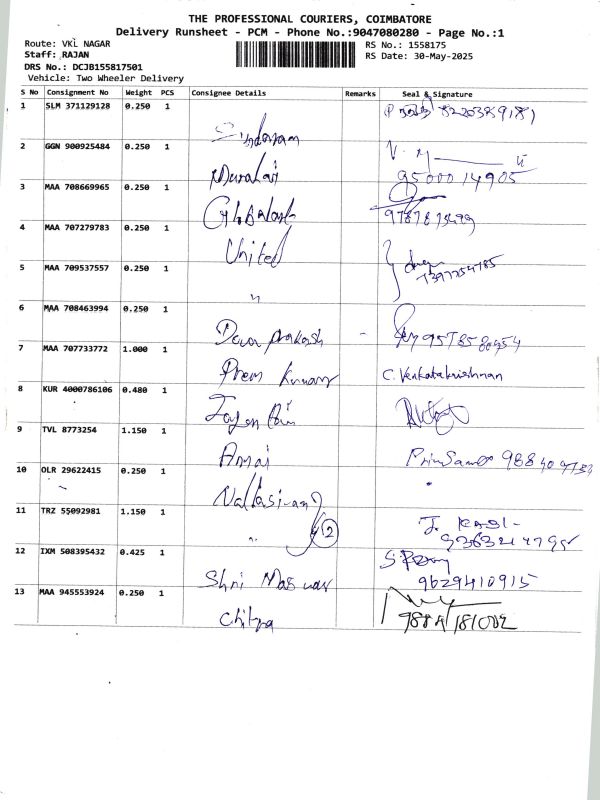 THE PROFESSIONAL COURIERS, COIMBATORE
Delivery Runsheet - PCM - Phone No.:9047080280 - Page No.:1
Route: VKL NAGAR
Staff: RAJAN
DRS No.: DCJB155817501
Vehicle: Two Wheeler Delivery
RS No.: 1558175
RS Date: 30-May-2025
S No Consignment No Weight PCS Consignee Details Remarks Seal & Signature
1 SLM 371129128 0.250 1
Sundaram
2 GGN 900925484 0.250 1
Murali 9500014905
3 MAA 708669965 0.250 1
4 MAA 707279783 0.250 1
United
5 MAA 709537557 0.250 1
"
6 MAA 708463994 0.250 1
Deva prakash -
7 MAA 707733772 1.000 1
Prem Kumar C. Venkatakrishnan
8 KUR 4000786106 0.480 1
9 TVL 8773254 1.150 1
10 OLR 29622415 0.250 1
Nallasivam
11 TRZ 55092981 1.150 1
" 2
12 IXM 508395432 0.425 1
Shri 9629410915
13 MAA 945553924 0.250 1
Chitra